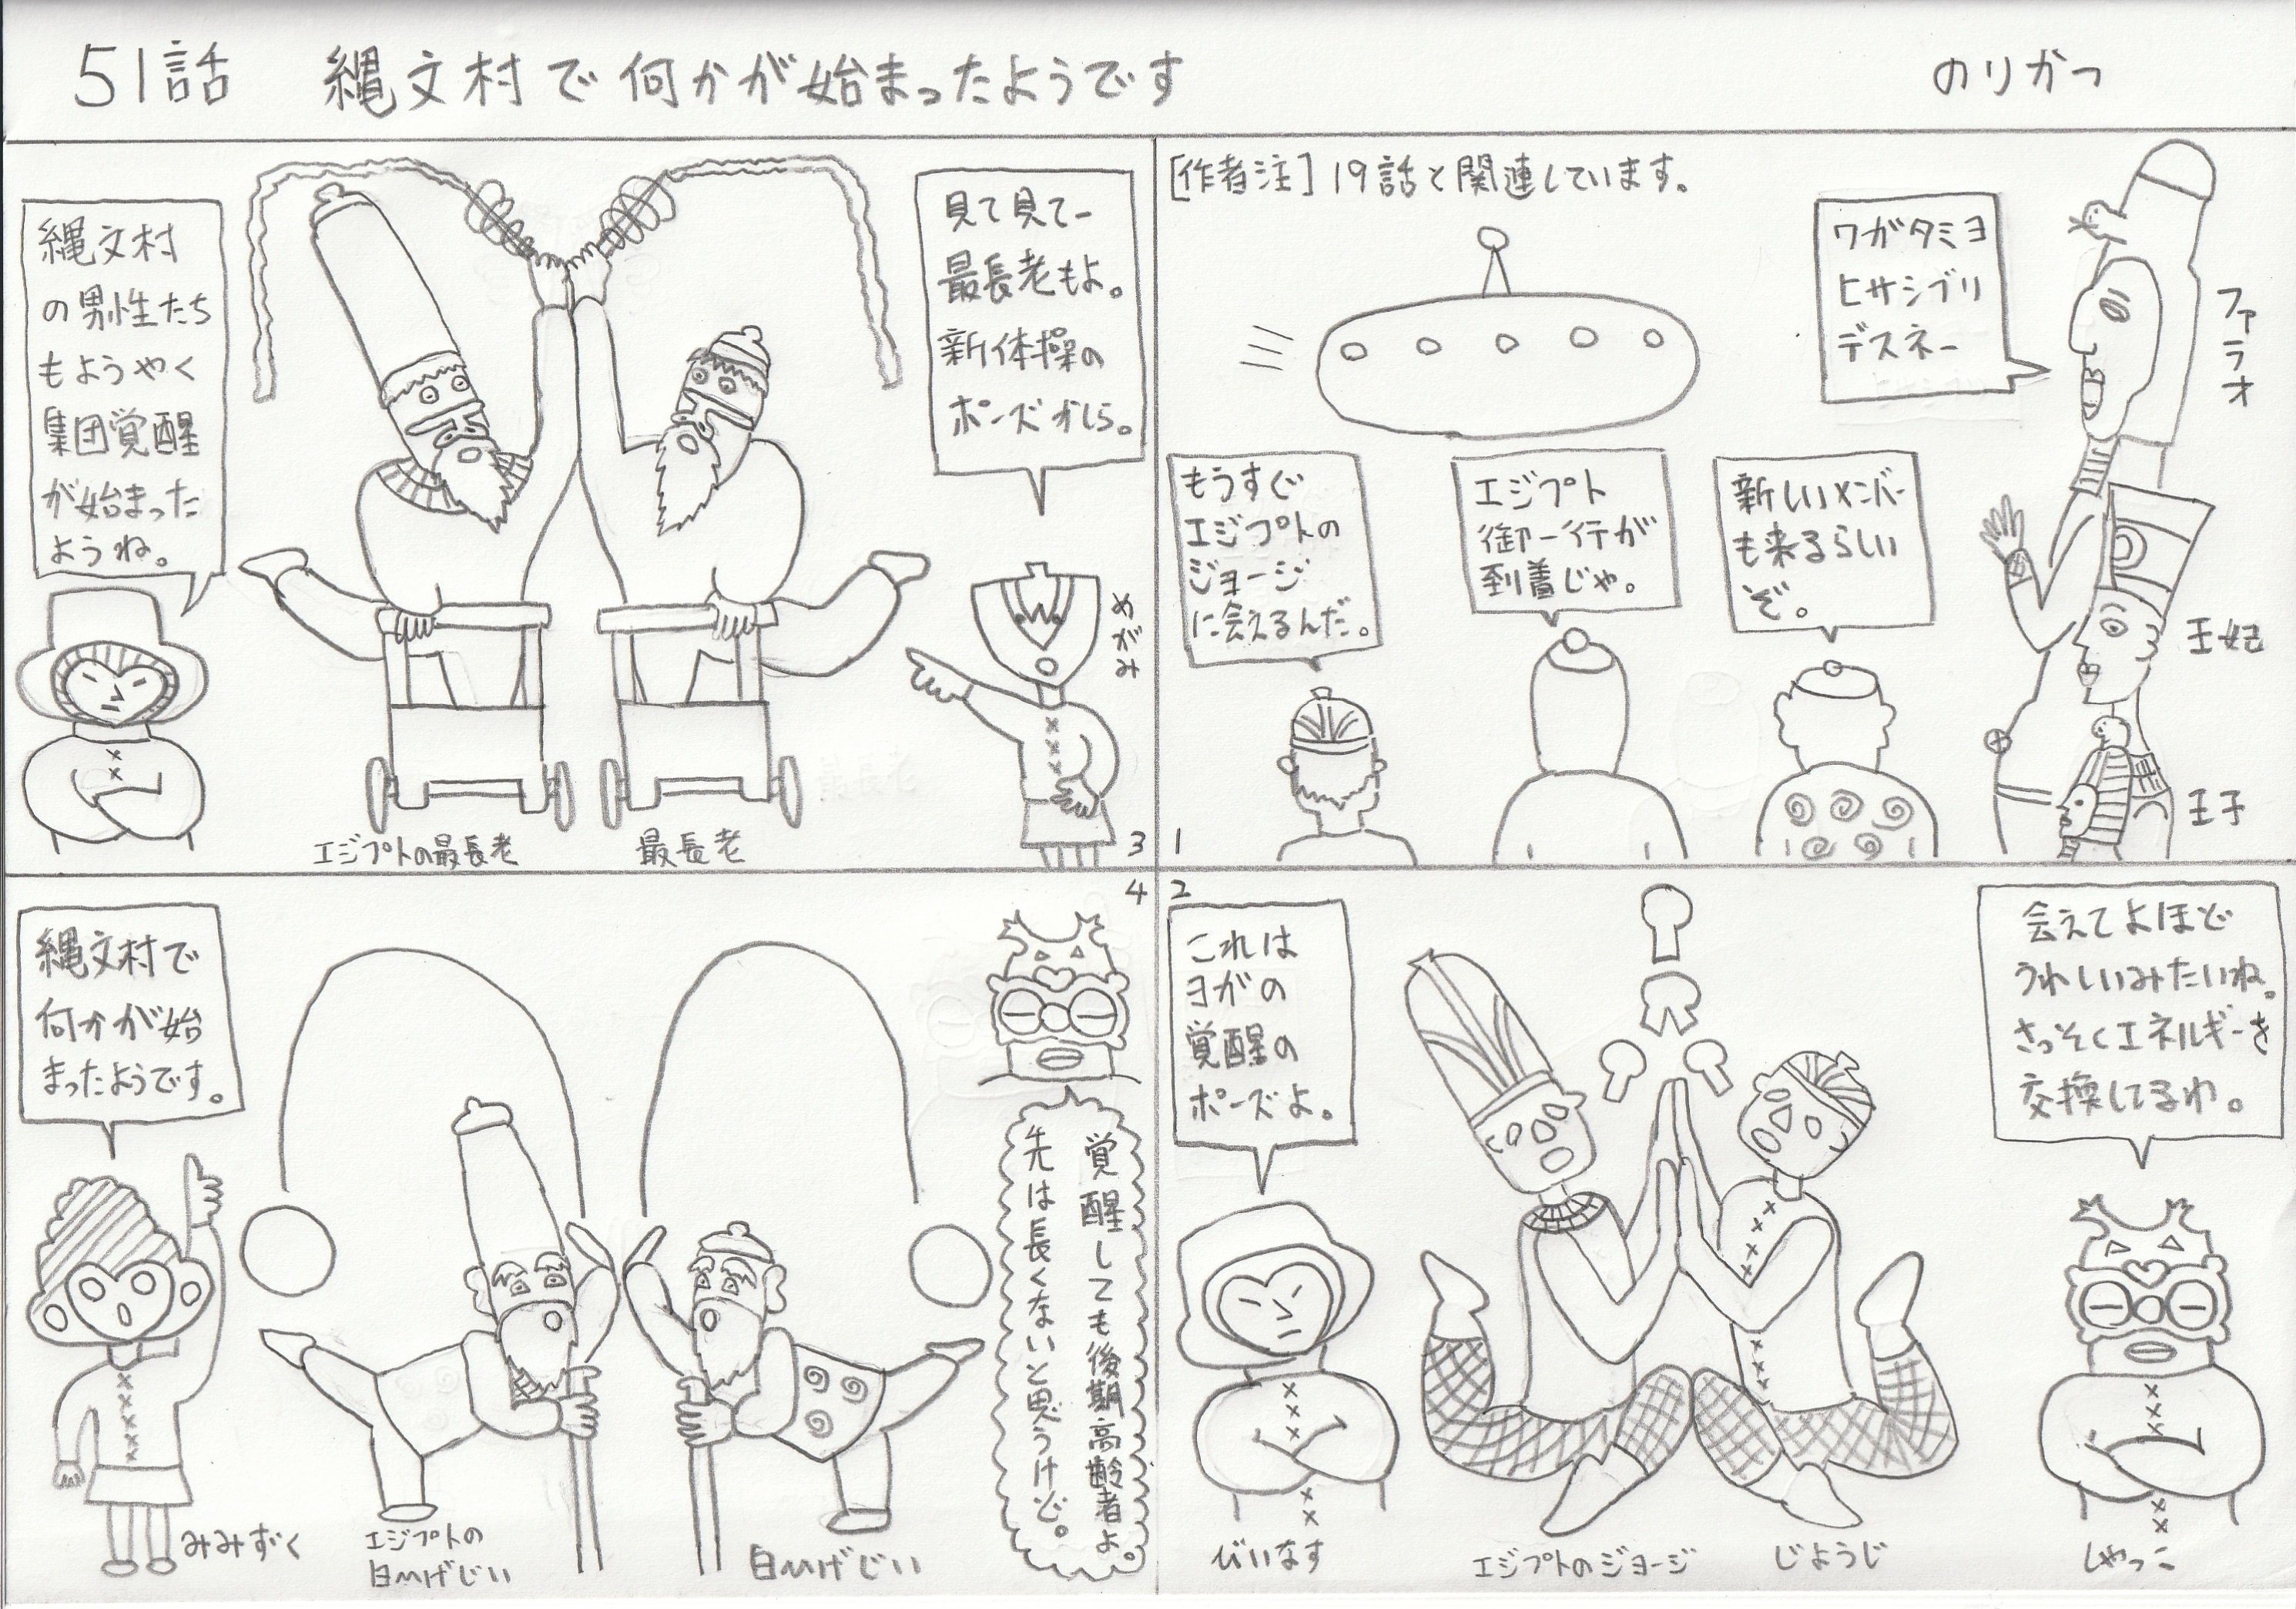 51話 縄文村で何かが始まったようです
のりかつ
[作者注] 19話と関連しています。
ワガタミヨ
ヒサシブリ
デスネー
ファラオ
王妃
王子
新しいメンバー
も来るらしい
ぞ。
エジプト
御一行が
到着じゃ。
もうすぐ
エジプトの
ジョージ
に会えるんだ。
1
2
会えてよほど
うれしいみたいね。
さっそくエネルギーを
交換してるわ。
これは
ヨガの
覚醒の
ポーズよ。
びいなす
エジプトのジョージ
じょうじ
しゃっこ
見て見てー
最長老もよ。
新体操の
ポーズかしら。
めがみ
縄文村
の男性たち
もようやく
集団覚醒
が始まった
ようね。
エジプトの最長老
最長老
3
4
覚醒しても後期高齢者よ。
先は長くないと思うけど。
縄文村で
何かが始
まったようです。
みみずく
エジプトの
白ひげじい
白ひげじい